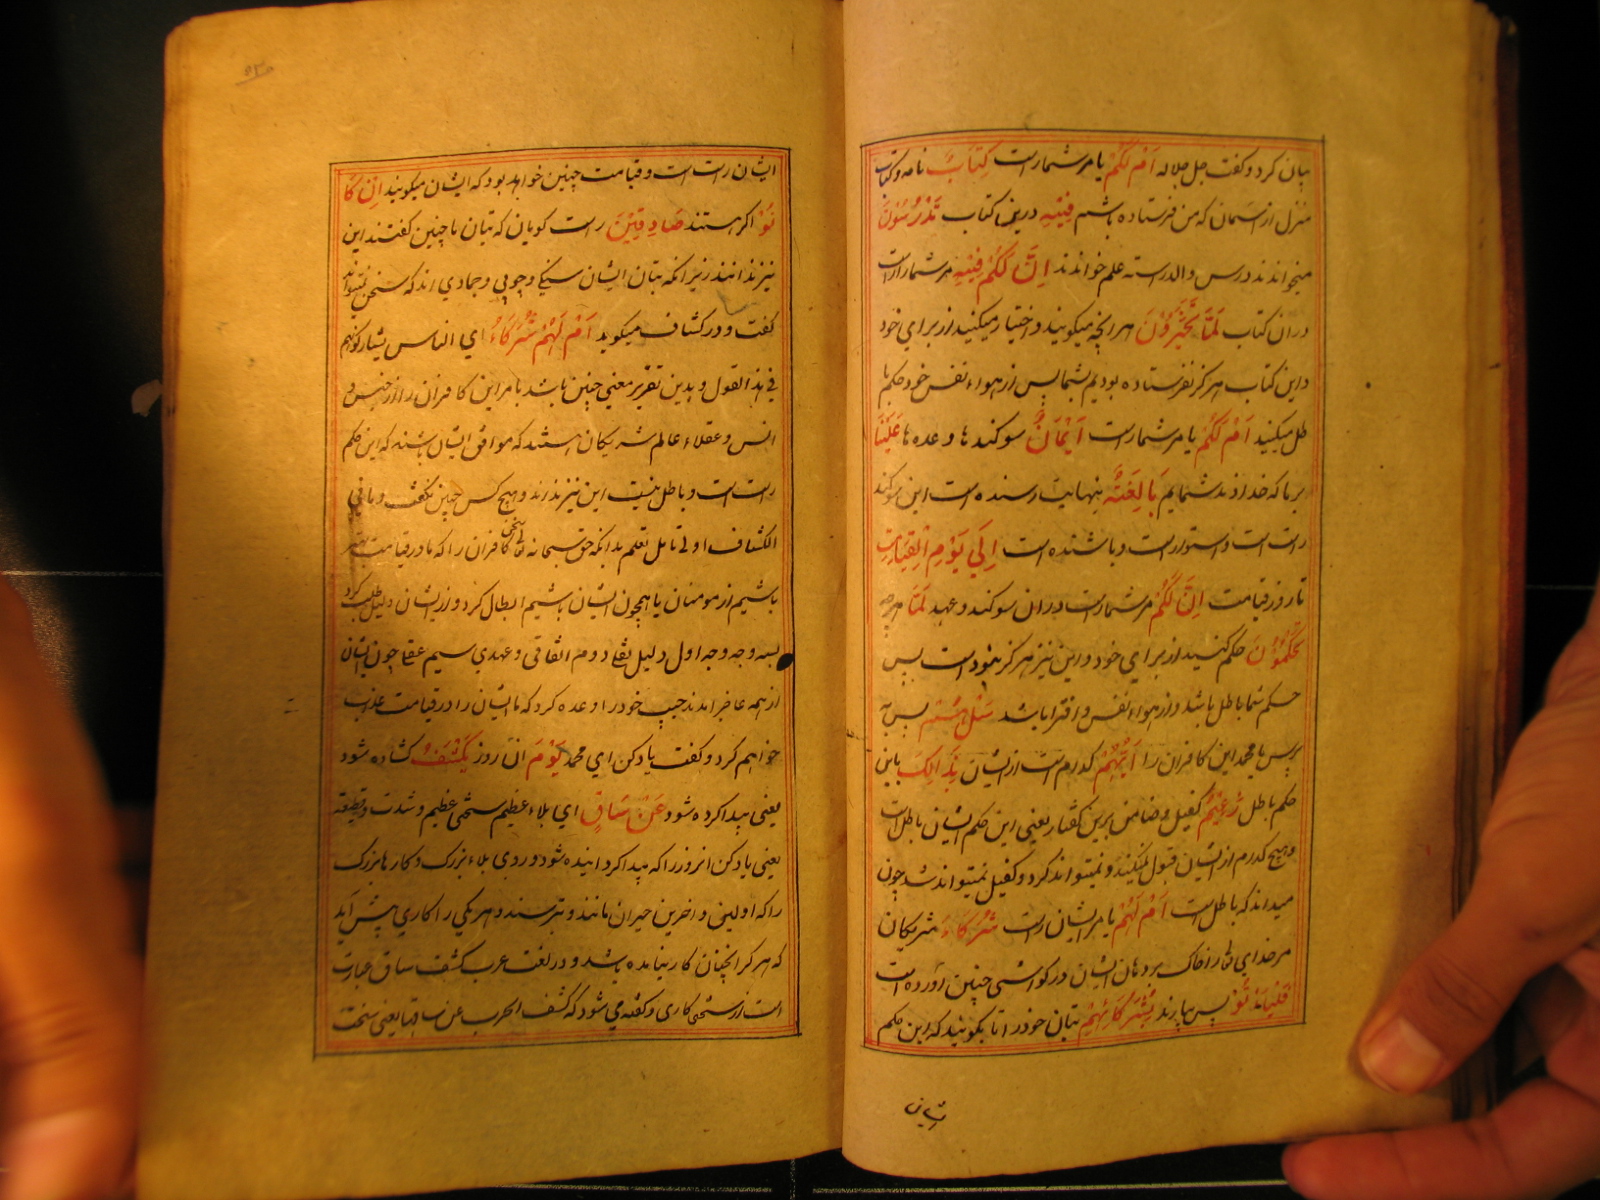 بیان کرد و کفت جل جلاله اَمْ لَكُمْ یا مر شماراست كِتَابٌ نامه و کتاب
منزل از آسمان که من فرستاده باشم فِيْهِ درین کتاب تَدْرُسُوْنَ
میخوانند درس و الدرسته علم خواندند اِنَّ لَكُمْ فِيْهِ مر شماراست
در ان کتاب لَمَا تَخَيَّرُوْنَ هر انچه میکویند و اختیار میکنید از برای خود
و این کتاب هرکز نفرستاده بودیم بشما پس از هواء نفس خود حکم با
طل میکنید اَمْ لَكُمْ یا مر شماراست اَيْمَانٌ سوکندها و عدها عَلَيْنَا
بر ما که خداوند شماایم بَالِغَةٌ بنهایت رسنده است این سوکند
راست است و استوارست و باشنده است اِلَي يَوْمِ الْقِيَامَةِ
تا روز قیامت اِنَّ لَكُمْ مر شماراست در ان سوکند و عهد لَمَا هرچه
تَحْكُمُوْنَ حکم کنید از برای خود و این نیز هرکز نبوداست پس
حکم شما باطل باشد و از هواء نفس و افترا باشد سَلْهُمْ پس
بپرس یا محمد این کافران را اَيُّهُمْ کدام است از ایشان بِذَالِكَ باین
حکم باطل زَعِيْمٌ کفیل و ضامن برین کفتار یعنی این حکم ایشان باطل است
و هیچ کدام از ایشان قبول نمیکنند و نمیتواند کرد و کفیل نمیتواند شد چون
میداند که باطل است اَمْ لَهُمْ یا مر ایشان راست شُرَكَاءُ شریکان
مر خدای تعالی را خاک بر دهان ایشان در کواشی چنین آورده است
فَلْيَاْتُوْ پس بیارند بِشُرَكَائِهِمْ بتان خود را تا بکویند که این حکم
ایشان
ایشان راست است و قیامت چنین خواهد بود که ایشان میکویند اِنْ كَا
نُوْ اکر هستند صَادِقِيْنَ راست کویان که بتان ما چنین کفتند این
نیز ندانند زیرا که بتان ایشان سنکی و چوبی و جمادی اند که سخن نتوانند
کفت و در کشاف میکوید اَمْ لَهُمْ شُرَكَاءُ ای الناس یشارکونهم
فی هذا القول و بدین تقریر معنی چنین باشد یا مر این کافران را از جنس و
انس و عقلاء عالم شریکان استند که موافق ایشان باشند که این حکم
راست است و باطل نیست این نیز ندارند و هیچ کس چنین نکفت و مافی
الکشاف اولی تامل تعلم بدانکه حق سبحانه تعالی سخن کافران را که ما در قیامت بهتر
باشیم از مومنان یا همچون ایشان باشیم ابطال کرد و از ایشان دلیل طلب کرد
بسه وجه وجه اول دلیل نقلی دوم اتفاقی و عهدی سیم عقلی چون ایشان
از همه عاجز امدند حبیب خود را وعده کرد که ما ایشان را در قیامت عذاب
خواهیم کرد و کفت یاد کن ای محمد يَوْمَ ان روز يُكْشَفُ کشاده شود
یعنی پیدا کرده شود عَنْ سَاقٍ ای بلاء عظیم سختی عظیم و شدت و قطیعه
یعنی یاد کن انروز را که پیدا کردانیده شود و روی بلاء بزرک و کارها بزرک
را که اولین و آخرین حیران مانند و بترسند و هر یکی را کاری پیش آید
که هرکز انچنان کار نیامده باشد و در لغت عرب کشف ساق عبارت
است از سختی کاری و کفته می شود که کشف الحرب عن ساقها یعنی سخت